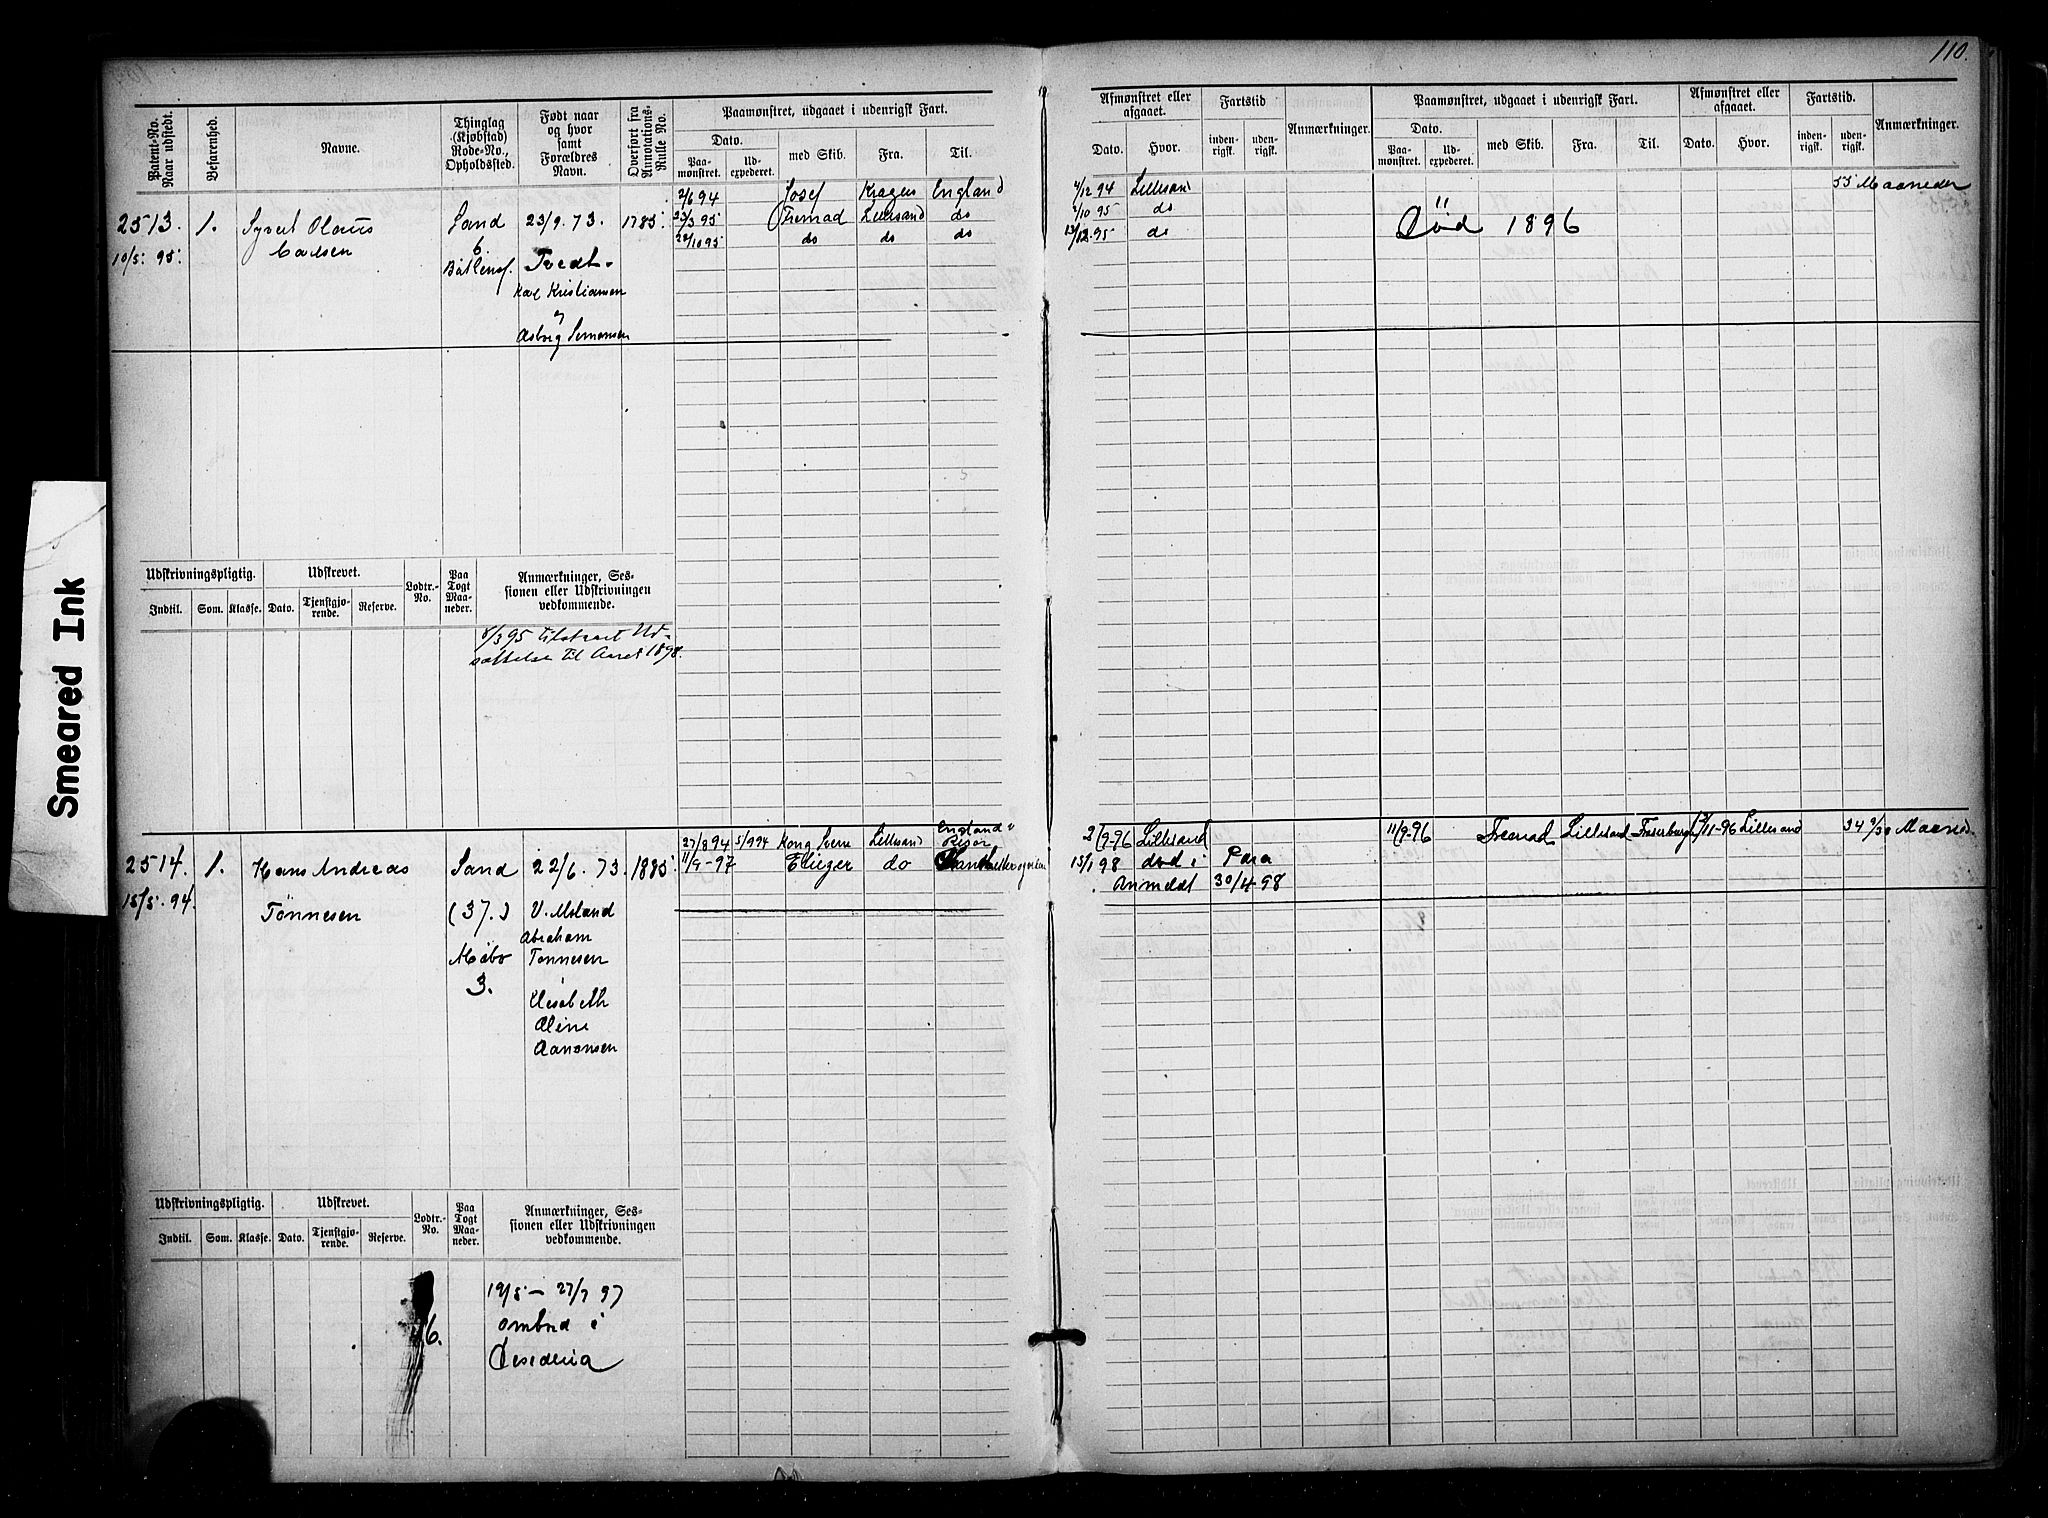 110.
Patent-No. Naar udstedt.
Befarenhed.
Navne.
Thinglag (Kjøbstad) Rode-No., Opholdssted.
Født naar og hvor samt Forældres Navn.
Overført fra Annotations-Rulle No.
Paamønstret, udgaaet i udenrigsk Fart.
Dato.
Paamønstret.
Udexpederet.
med Skib.
Fra.
Til.
Afmønstret eller afgaaet.
Dato.
Hvor.
Fartstid
indenrigsk.
udenrigsk.
Anmærkninger.
Paamønstret, udgaaet i udenrigsk Fart.
Dato.
Paamønstret.
Udexpederet.
med Skib.
Fra.
Til.
Afmønstret eller afgaaet.
Dato.
Hvor.
Fartstid.
indenrigsk.
udenrigsk.
Anmærkninger.
2513.
10/5. 95.
1.
Syvert Olaus
Carlsen
Sand
6.
23/9. 73.
Tvedt
Karl Kristiansen
og
1785.
2/6 94 Josef Kragerø England
23/3 95 Lillesand do
22/10 95 do do do
4/12 94 Lillesand
2/10 95 do
13/12. 95 do
Død 1896
55 Maaneder
Udskrivningspligtig.
Udskrevet.
Lodtr.-No.
Paa Togt Maaneder.
Anmærkninger, Sessionen eller Udskrivningen vedkommende.
Indtil.
Som.
Klasse.
Dato.
Tjenstgjørende.
Reserve.
8/3 95 tilstaaet Ud-
sættelse til Aaret 1898.
2514.
15/5. 94.
1.
Hans Andreas
Tönnesen
Sand
(37.)
3.
22/6. 73.
Abraham
Tönnesen
Elisabeth
Oline
Aanonsen
1885.
27/8 94 5/9 94 Kong Sverre Lillesand England
Risør
11/9-97 Eliezer do
Lillesand
15/1 98 død i Para
Anmeldt 30/4-98
11/9-96 Lillesand
11-96 Lillesand
Udskrivningspligtig.
Udskrevet.
Lodtr.-No.
Paa Togt Maaneder.
Anmærkninger, Sessionen eller Udskrivningen vedkommende.
Indtil.
Som.
Klasse.
Dato.
Tjenstgjørende.
Reserve.
19/5 - 27/7 97
ombord i
Desideria
Smeared Ink